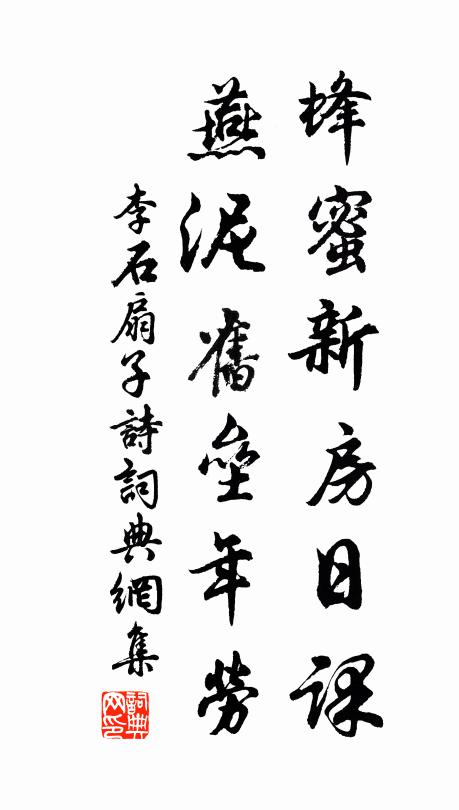 蜂蜜新房日課
燕泥舊壘年勞
李石扇子詩詞典網集
詞典網印